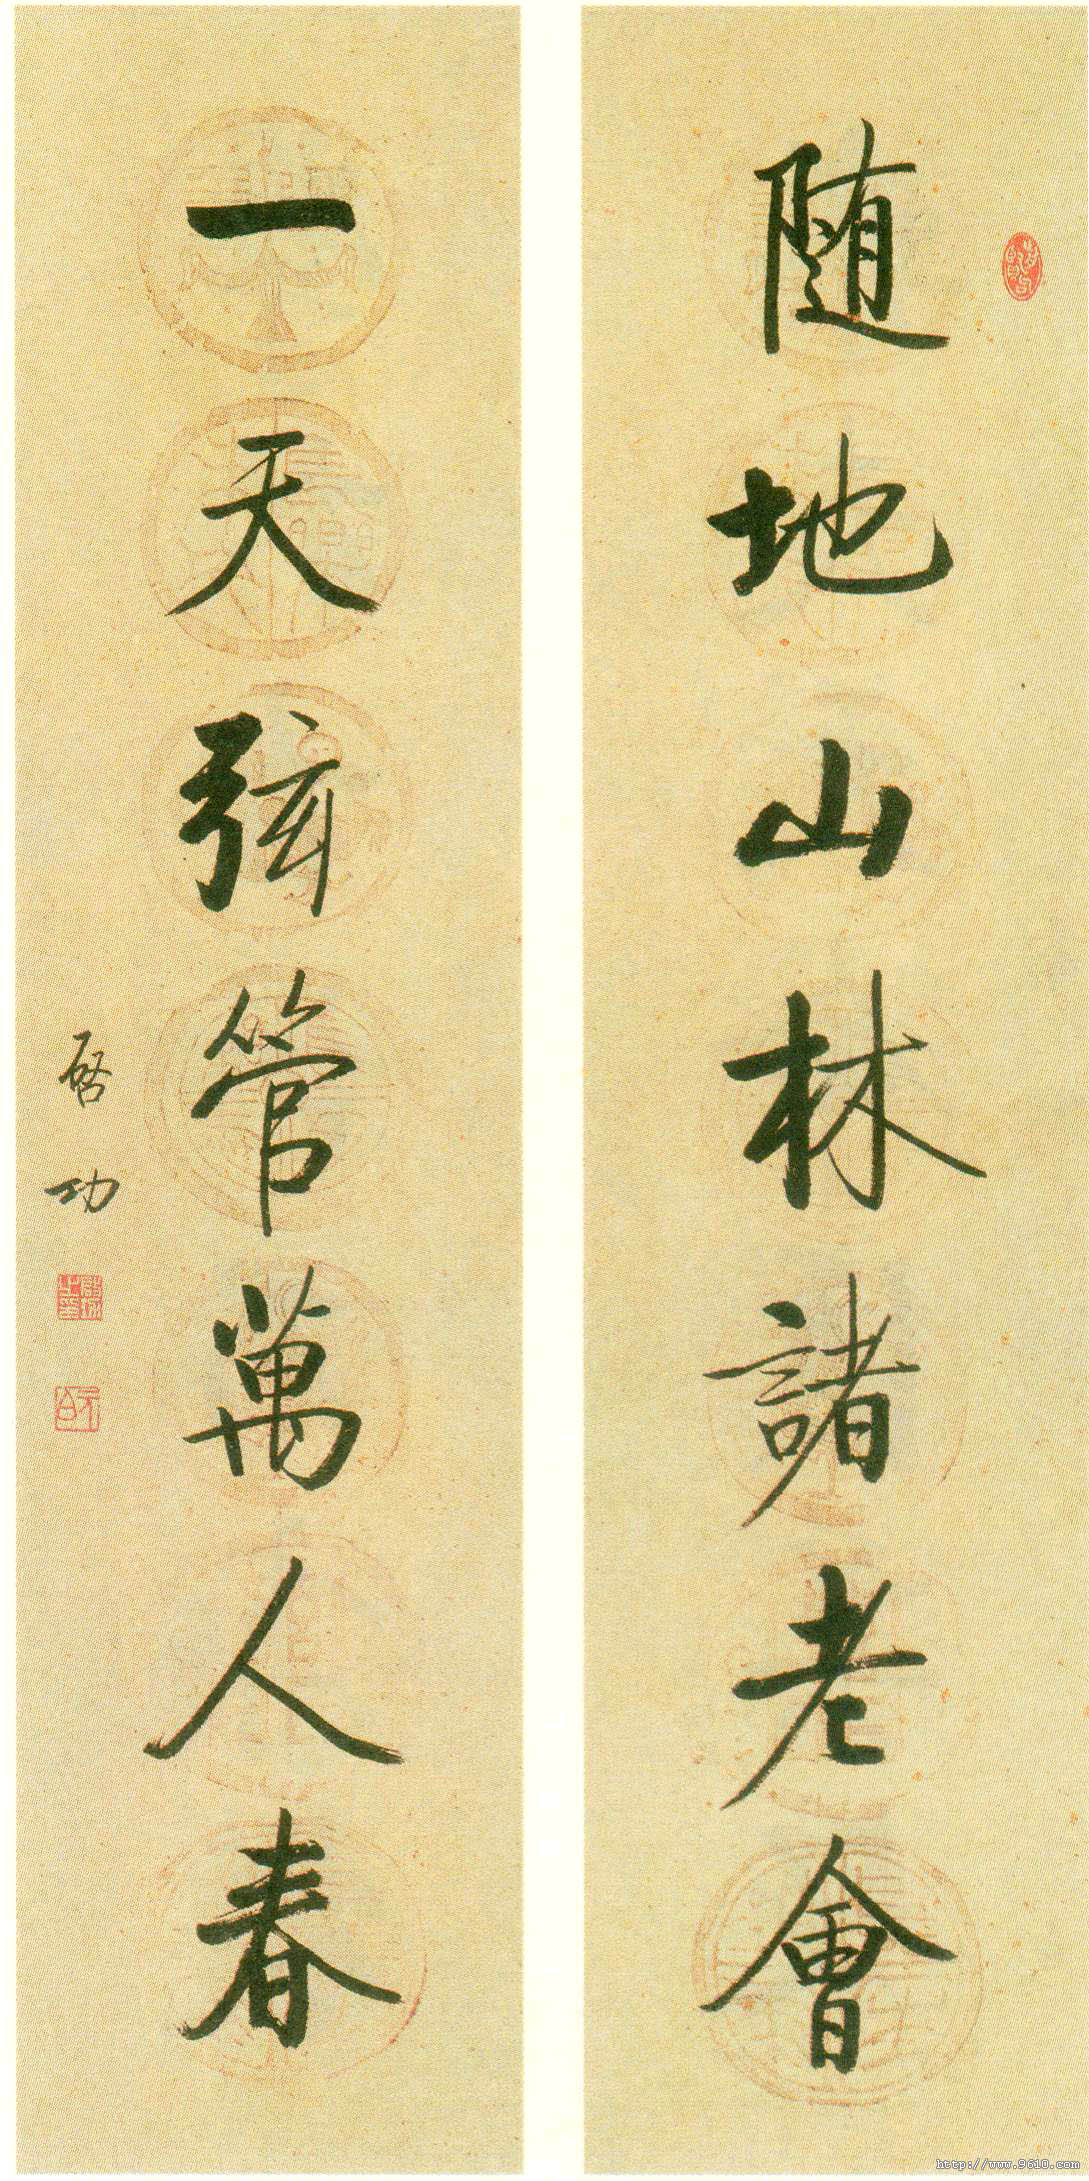 随地山林諸老會
一天弦管萬人春
启功
http://www.9610.com